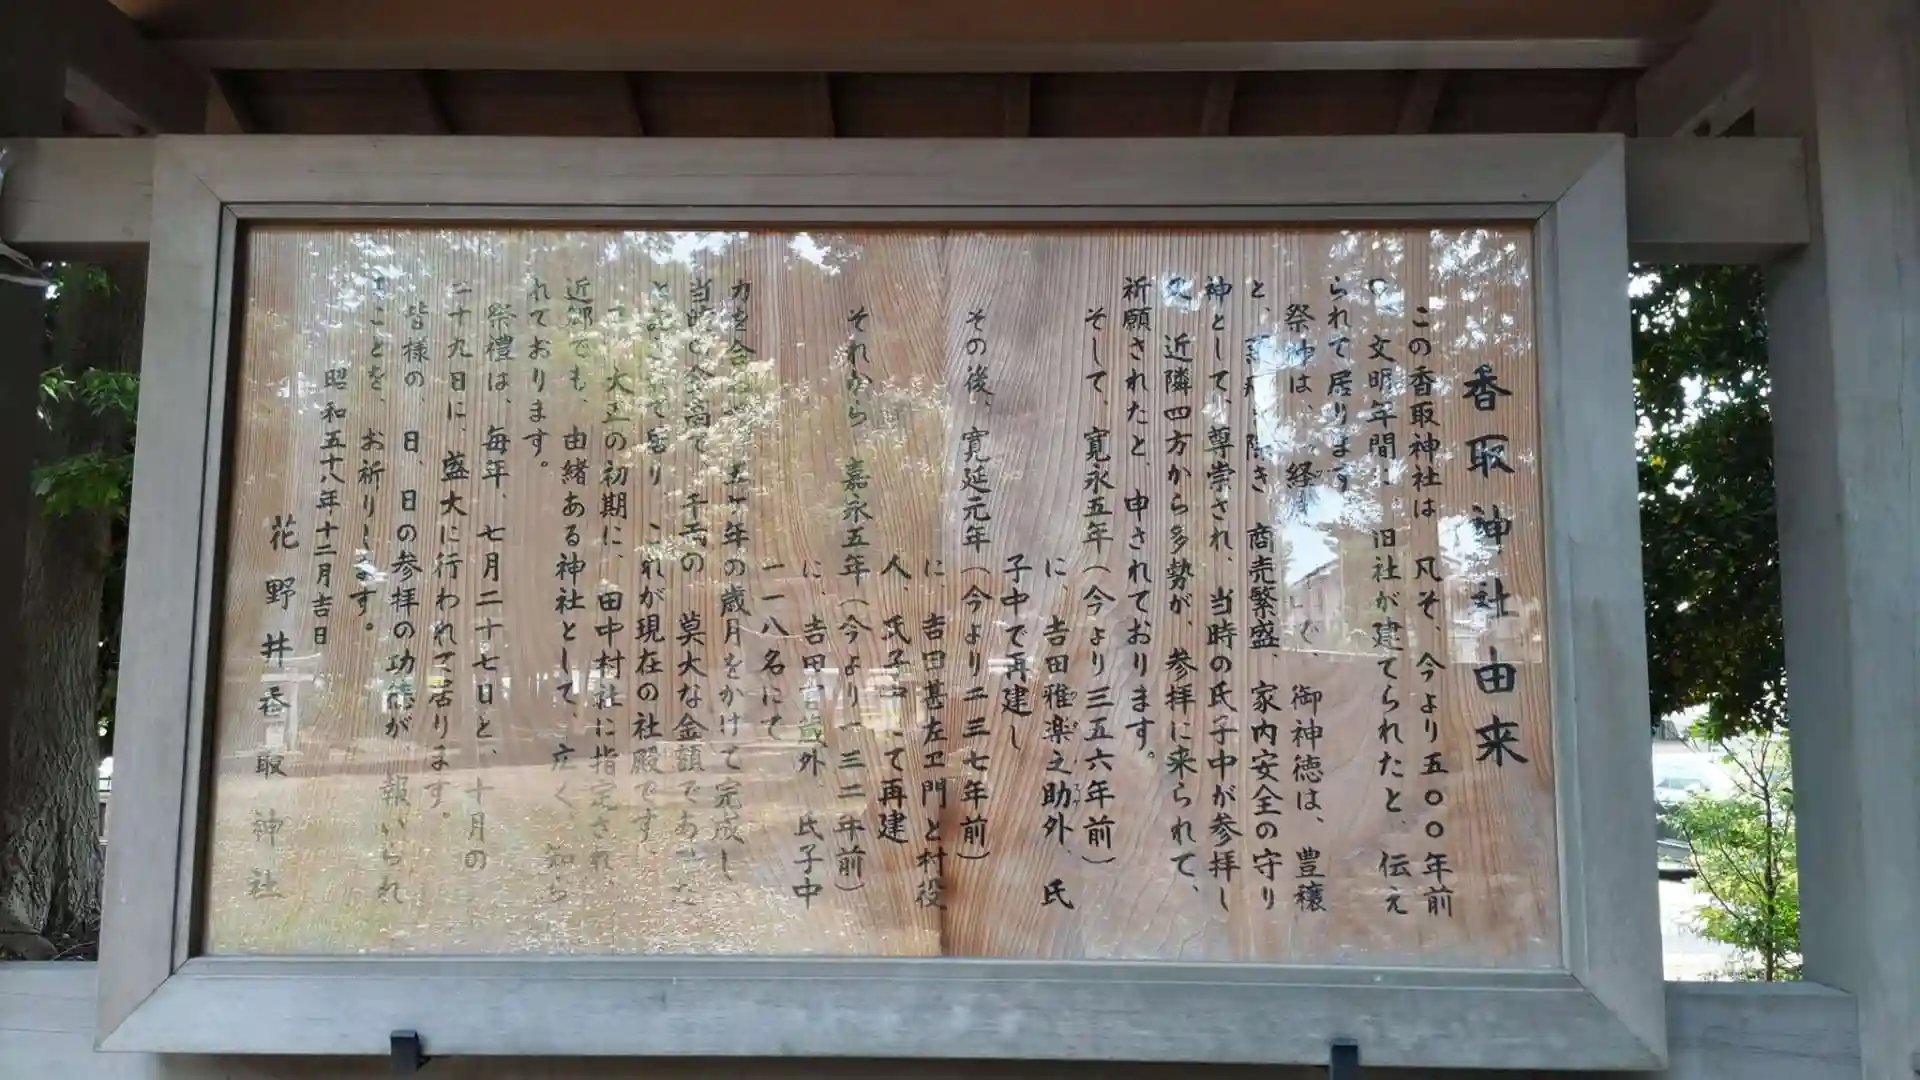 香取神社由来
この香取神社は 凡そ、今より五〇〇年前
の 文明年間に 旧社が建てられたと、伝え
られて居ります
祭神は、経 で、御神徳は、豊穣
と、 除き 商売繁盛、家内安全の守り
神として、尊崇され、当時の氏子中が参拝し
又 近隣四方から多勢が、参拝に来られて、
祈願されたと、申されております。
そして、寛永五年(今より三五六年前)
に、吉田雅楽之助外、氏
子中で再建し
その後、寛延元年(今より二三七年前)
に、吉田甚左ヱ門と村役
人、氏子中にて再建
それから 嘉永五年(今より一三二年前)
に、吉田 外、氏子中
一一八名にて
力を合 年の歳月をかけて完成し
当時の金高で、千両の 莫大な金額であった
と 居り これが現在の社殿です
大正の初期に、田中村社に指定され、
近郷でも、由緒ある神社として、広く、知ら
れております。
祭禮は、毎年、七月二十七日と、十月の
二十九日に、盛大に行われて居ります。
皆様の、日、日の参拝の功徳が 報いられ
ことを、お祈りします。
昭和五十八年十二月吉日
花野井香取神社